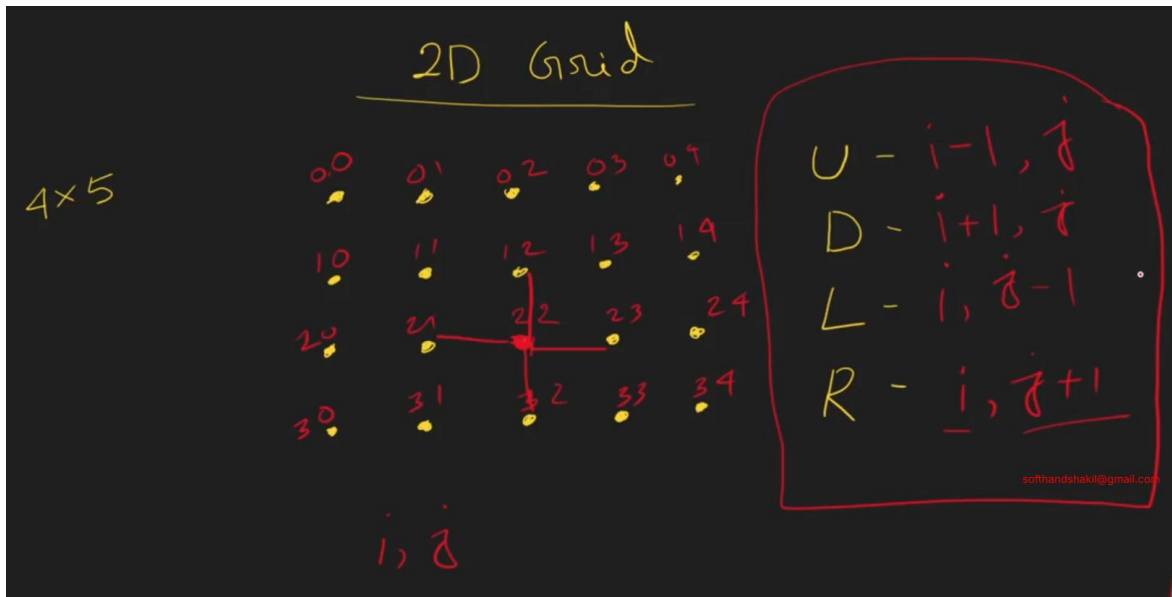 2D Grid
4×5
0,0 01 02 03 04
10 11 12 13 14
20 21 22 23 24
30 31 32 33 34
i, j
U - i-1, j
D - i+1, j
L - i, j-1
R - i, j+1
softhandshakil@gmail.com